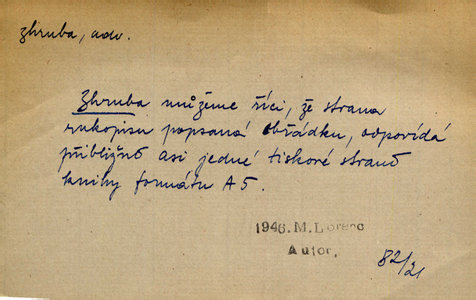 zhruba, adv.
Zhruba můžeme říci, že strana
rukopisu popsaná obřádku, odpovídá
přibližně asi jedné tiskové straně
knihy formátu A5.
1946. M. Lorenc
Autor,
82/21